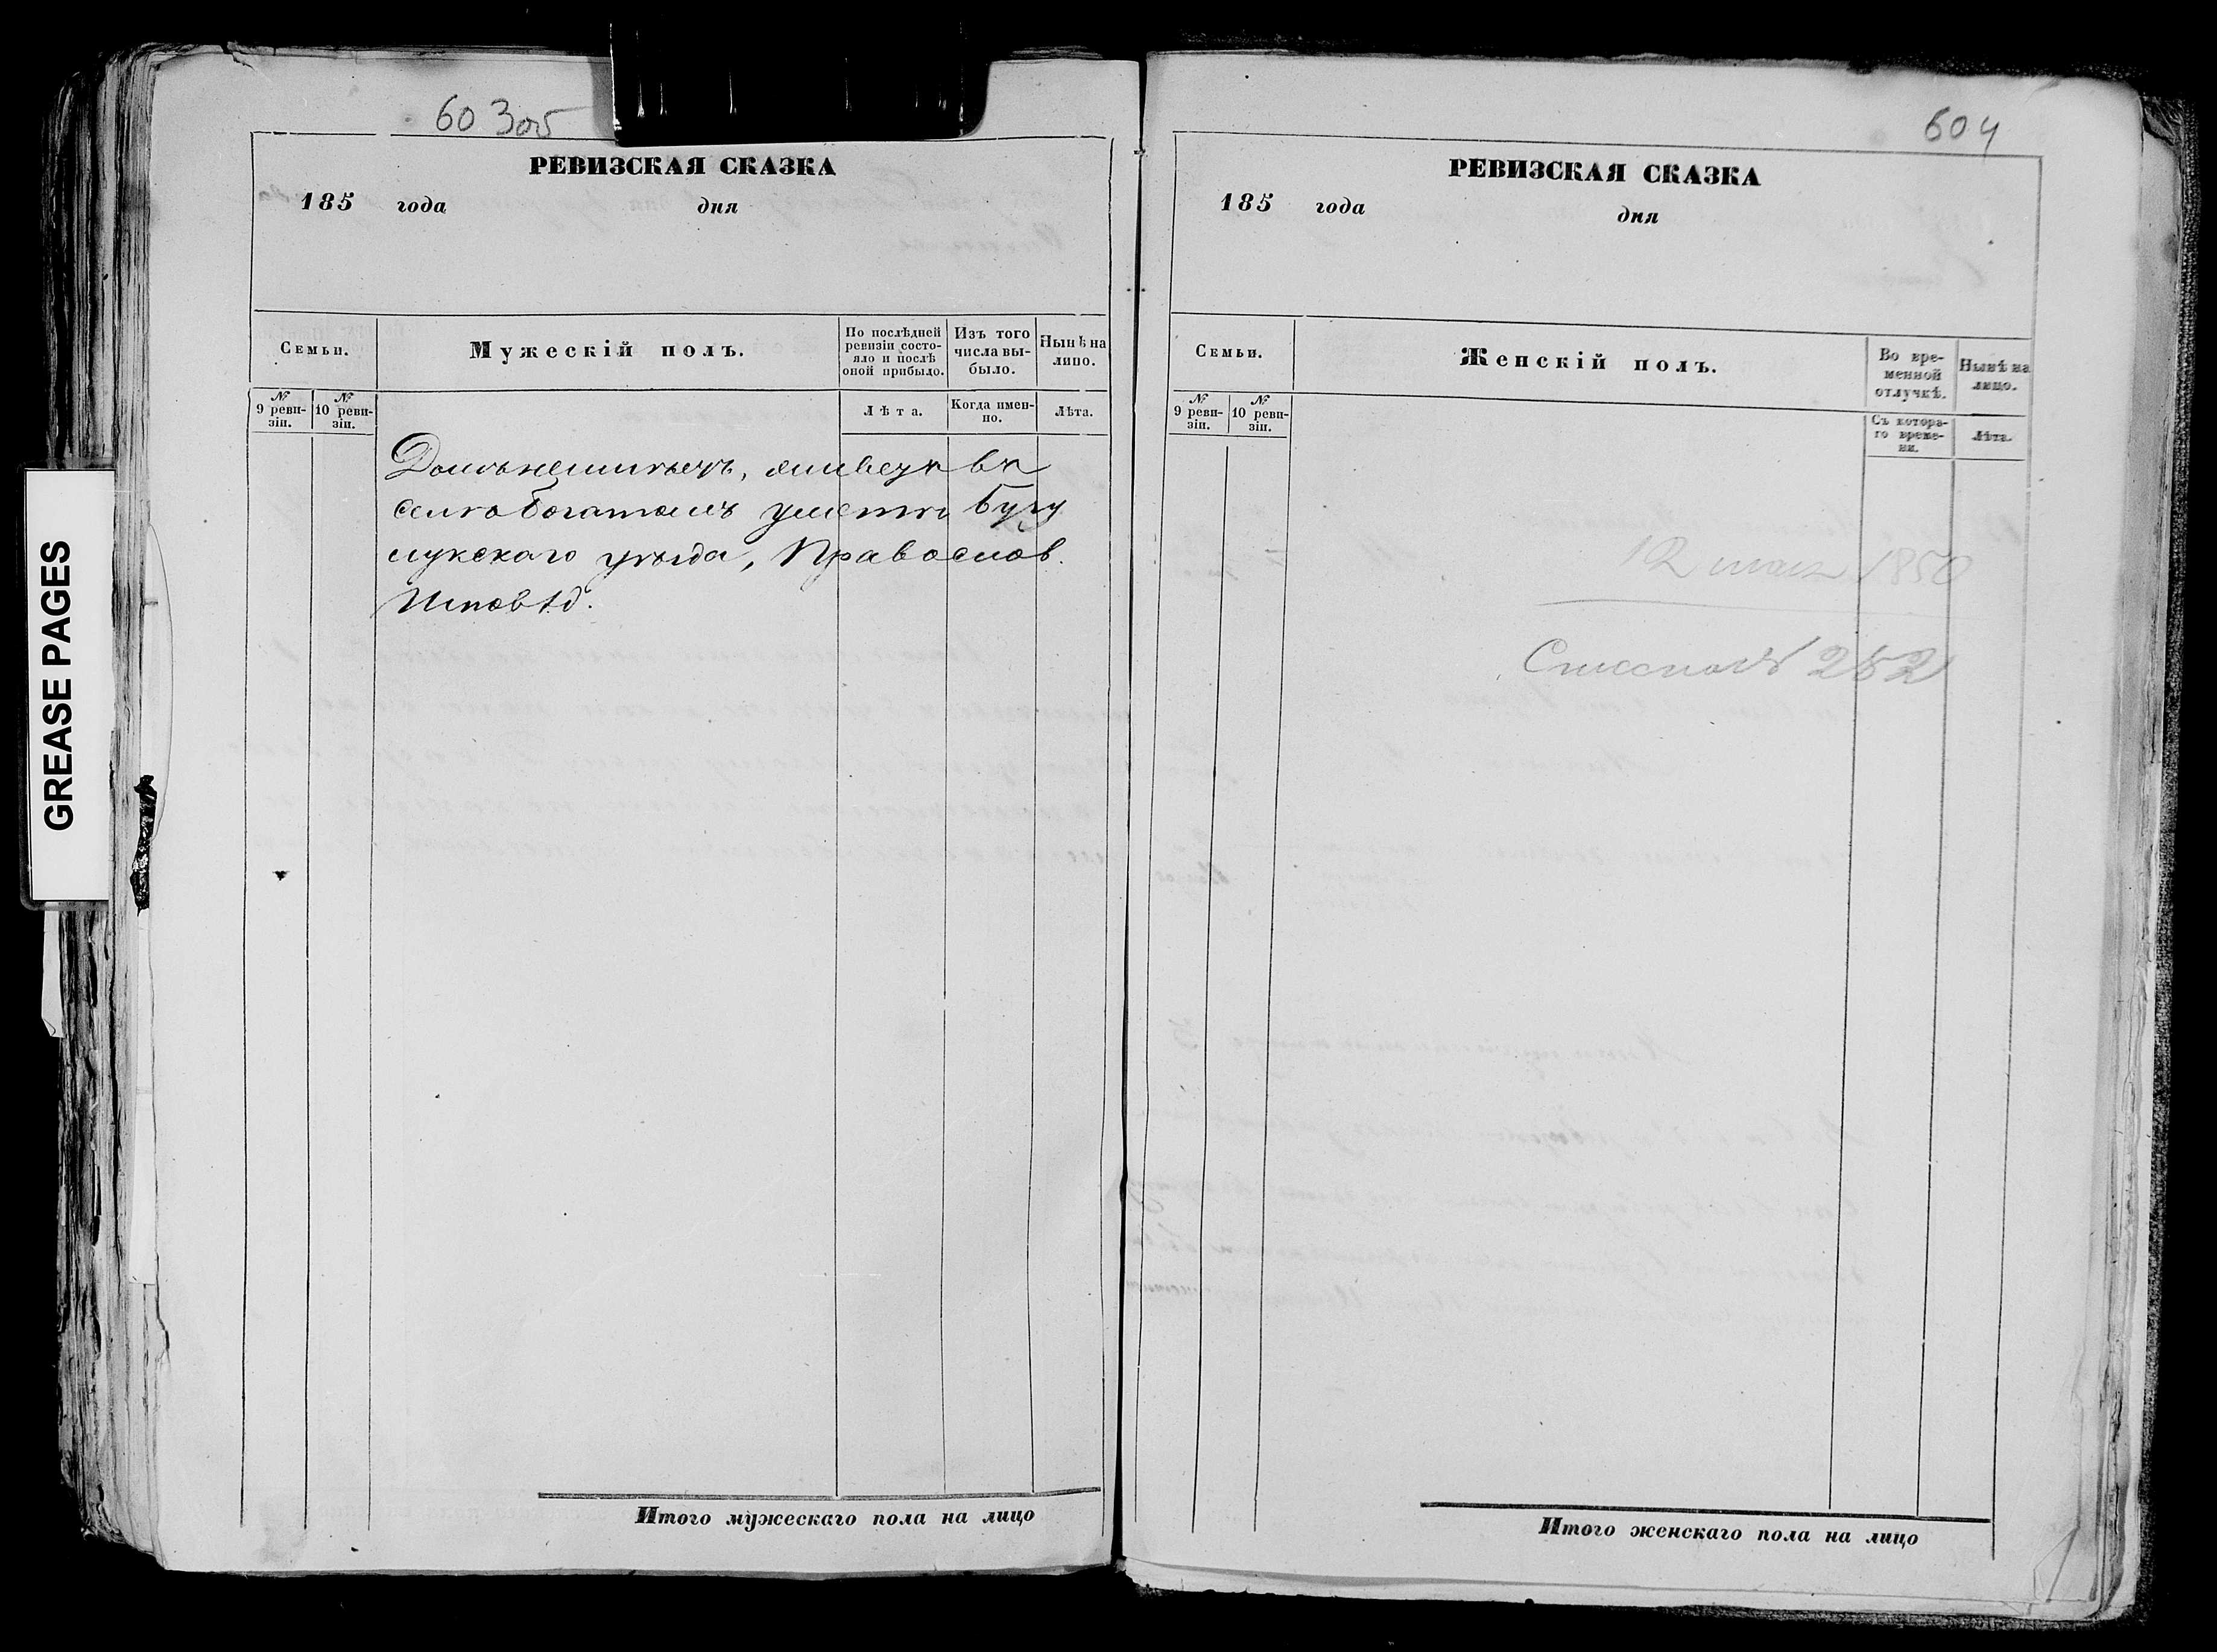 60 3об
РЕВИЗСКАЯ СКАЗКА
185 года дня
Семьи.
Мужескій полъ.
По послѣдней ревизіи состо-
яло и послѣ оной прибыло.
Изъ того числа вы-
было.
Нынѣ на лицо.
№ 9 реви-
зіи.
№ 10 реви-
зіи.
Лѣта.
Когда имен-
но.
Лѣта.
въ
селѣ Богатомъ Бугу
уѣзда, Православ.
Исповѣд.
Итого мужескаго пола на лицо
GREASE PAGES
604
РЕВИЗСКАЯ СКАЗКА
185 года дня
Семьи.
Женскій полъ.
Во вре-
менной
отлучкѣ.
Нынѣ на
лицо.
№ 9 реви-
зіи.
№ 10 реви-
зіи.
Съ котора-
го време-
ни.
Лѣта.
12 мая 1850
252
Итого женскаго пола на лицо